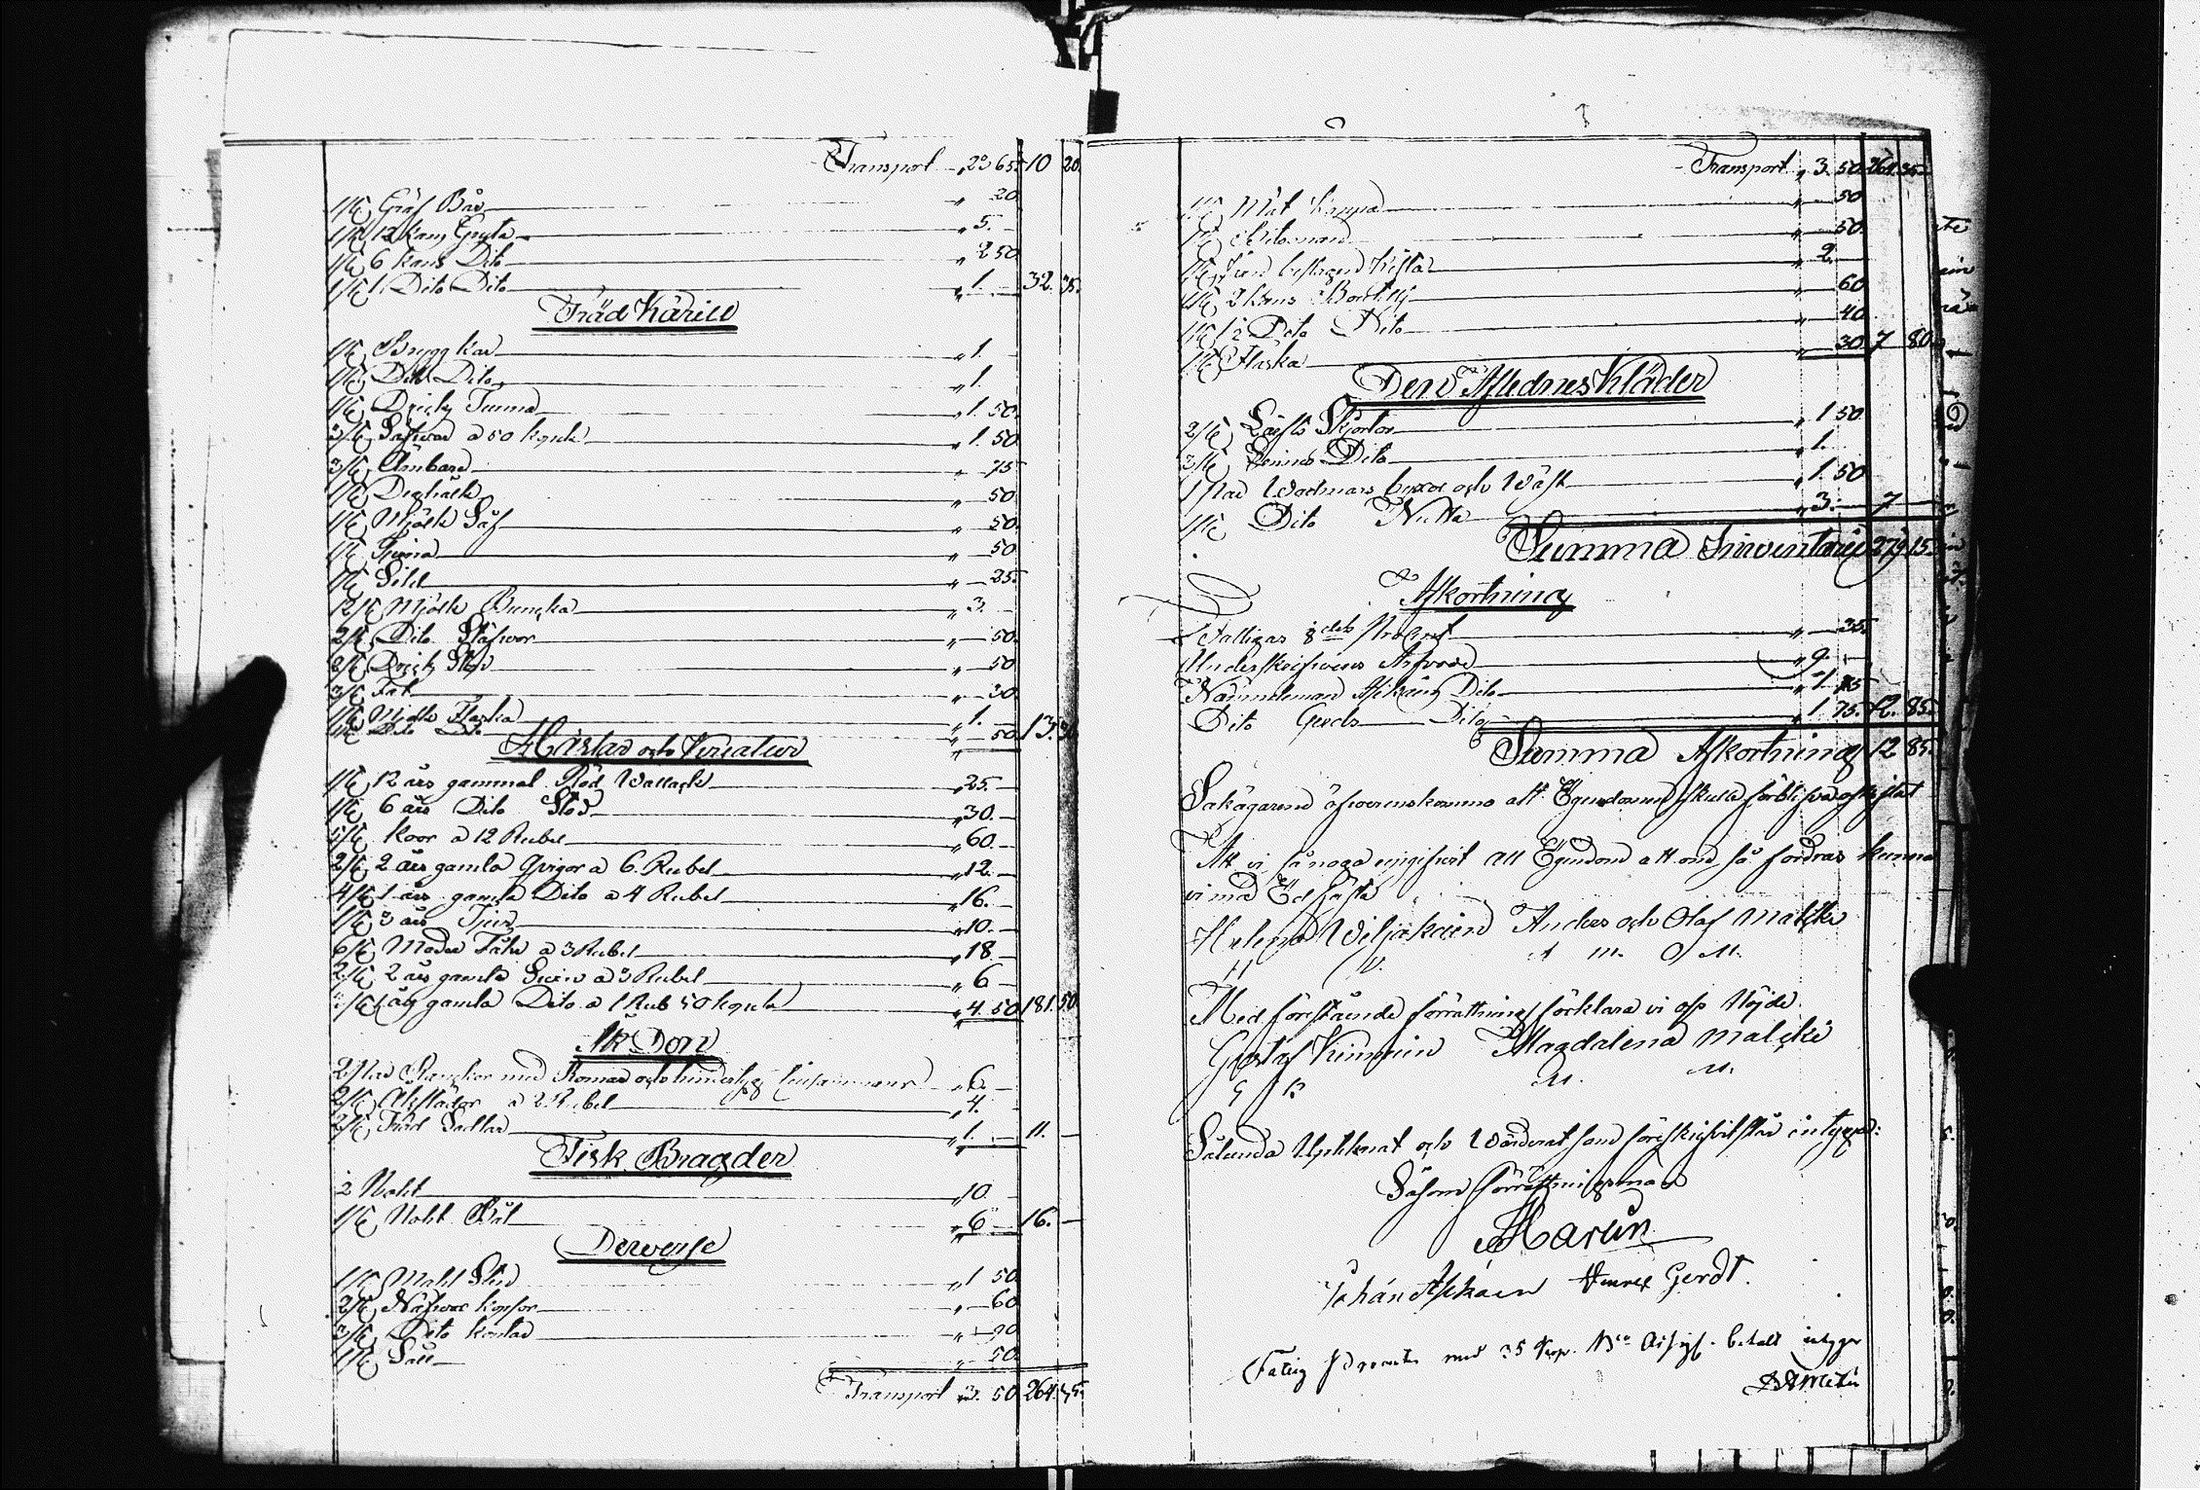 Transport „ 23 65. 10 20.
1 St. Gräf Bår „ — 20
1 St. 12 kans Gryta „ 5. —
1 St. 6 kans Dito „ 2 50
1 St. 1 Dito Dito „ 1. — 32. 35.
Träd Kärill
1 St. Brygg kar „ 1. —
1 St. Dito Dito „ 1. —
1 St. Dricks Tunna „ 1. 50.
3 St. Såfwar a 50 kopek „ 1. 50
3 St. Ämbare „ — 75
1 St. Degtråg „ — 50
1 St. Mjölk Såf „ — 50.
1 St. Tjina „ — 50
1 St. Sild „ — 25.
12 St. Mjölk Bunka „ 3. —
2 St. Dito Stäfwor „ — 50.
2 St. Drick Stop „ — 50
3 St. Fat „ — 30
1 St. Mjölk Flaska „ 1. —
1 St. Dito Dito „ — 50 13. 30
Hästar och Kreatur
1 St. 12 års gammal Röd Wallack „ 25. —
1 St. 6 års Dito Stod „ 30. —
5 St. koor a 12 Rubel „ 60. —
2 St. 2 års gamla Qvigor a 6 Rubel „ 12. —
4 St. 1 års gamla Dito a 4 Rubel „ 16. —
1 St. 3 års Tjur „ 10. —
6 St. Moder Fåhr a 3 Rubel „ 18. —
2 St. 2 års gamla Swin a 3 Rubel „ 6 —
3 St. 1 års gamla Dito a 1 Rub 50 kopek „ 4. 50 181. 50
Åk Don
2 Par med Remar och „ 6. —
2 St. Åkslädor a 2 Rubel „ 4. —
2 St. Sadlar „ 1. — 11. —
Fisk Bragder
2 Noht „ 10. —
1 St. Noht Båt „ 6 — 16. —
Dewerse
1 St. Maht Sled „ 1 50
2 St. Näfwer kopsor „ — 60
3 St. Dito kontar „ — 90
1 St. Såll „ — 50.
Transport 3. 50 264. 35
Transport „ 3. 50. 264. 35.
1 St. Mat kappa „ — 50
1 St. Bitsman „ — 50.
1 St. Jern beslagen kista „ 2. —
1 St. 2 kans Boutelj „ — 60
1 St. 1/2 Dito Dito „ — 40
1 St. Flaska „ — 30. 7 80.
Den Aflednes Kläder
2 St. Lärfts Skjortor „ 1 50.
3 St. Linnes Dito „ 1. —
1 Par Wadmars byxor och Wäst „ 1. 50
1 St. Dito Nutta „ 3. — 7 —
Summa Inventarie 279 15.
Afkortning
Fattigas 8dels „ — 35.
Underskrifwens Arfwode „ 9. —
Nämndeman Asikain Dito „ 1. 75
Dito Gerdts Dito „ 1. 75. 12. 85.
Summa Afkortning 12 85.
Sakägarena öfwerenskommo att Egendomen skulle förblifwa oskiftat
Att vi så noga uppgifwit all Egendom att om så fordras kunna
vi med Ed fästa
Helena Wiljakain Anders och Olof Malski
H W. A M. O M.
Med föreståënde förrättning förklara vi oss Nöjde.
Gustaf Kinnnin Magdalena Malski
G K M. M.
Sålunda Uptecknat och Wärderat som föreskrifvit står intyga:
Såsom förrättningsmän
Harlin
Johan Asikain Henrik Gerdt.
Fattig med 35 kop. Bco Assign. betalt intygar